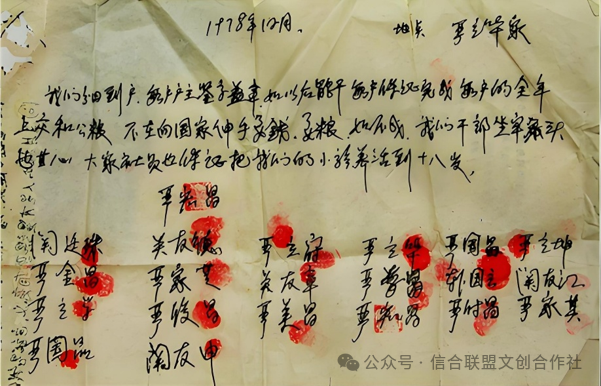 1978年12月. 地点 严立华家
我们分田到户,每户户主签字盖章,如以后能干每户保证完成每户的全年
上交和公粮 不在向国家伸手要钱要粮,如不成,我们干部坐牢杀头
也甘心 大家社员也保证把我们的小孩养活到十八岁,
严宏昌
关廷珠 关友德 严立符 严立华 严国昌 严立坤
严金昌 严家芝 关友章 严学昌 韩国云 关友江
严立学 严俊昌 严美昌 严宏昌 严付昌 严家其
严国品 关友申
公众号·信合联盟文创合作社